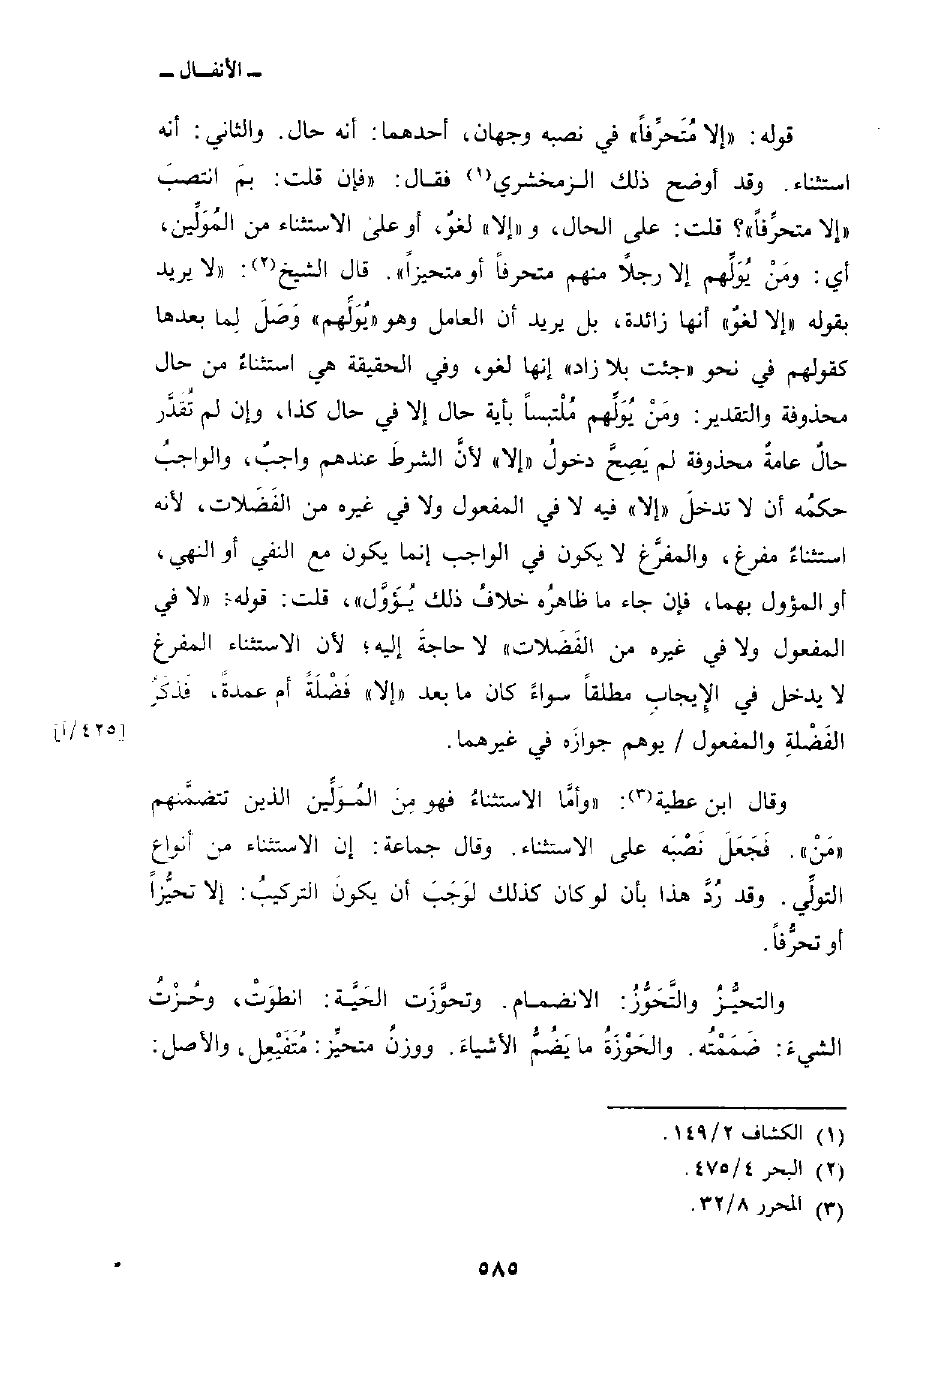 ـ الأنفـال ـ
قوله: «إلا مُتَحرِّفاً» في نصبه وجهان، أحدهما: أنه حال. والثاني: أنه
استثناء. وقد أوضح ذلك الـزمخشري(١) فقـال: «فإن قلت: بمَ انتصبَ
«إلا متحرِّفاً»؟ قلت: على الحال، و«إلا» لغوٌ، أو على الاستثناء من المُوَلِّين،
أي: ومَنْ يُوَلِّهم إلا رجلاً منهم متحرفاً أو متحيزاً». قال الشيخ(٢): «لا يريد
بقوله «إلا لغوٌ» أنها زائدة، بل يريد أن العامل وهو «يُوَلِّهم» وَصَلَ لِما بعدها
كقولهم في نحو «جئت بلا زاد» إنها لغو، وفي الحقيقة هي استثناءٌ من حال
محذوفة والتقدير: ومَنْ يُوَلِّهم مُلْتبساً بأية حال إلا في حال كذا، وإن لم تُقَدَّر
حالٌ عامةٌ محذوفة لم يَصِحَّ دخولُ «إلا» لأنَّ الشرطَ عندهم واجبٌ، والواجبُ
حكمُه أن لا تدخلَ «إلا» فيه لا في المفعول ولا في غيره من الفَضَلات، لأنه
استثناءٌ مفرغ، والمفرَّغ لا يكون في الواجب إنما يكون مع النفي أو النهي،
أو المؤول بهما، فإن جاء ما ظاهرُه خلافُ ذلك يُـؤَوَّل»، قلت: قوله: «لا في
المفعول ولا في غيره من الفَضَلات» لا حاجةَ إليه؛ لأن الاستثناء المفرغ
لا يدخل في الإِيجابِ مطلقاً سواءً كان ما بعد «إلا» فَضْلَةً أم عمدةً، فَذِكْرُ
الفَضْلةِ والمفعول / يوهم جوازَه في غيرهما.
[٤٢٥/أ]
وقال ابن عطية(٣): «وأمَّا الاستثناءُ فهو مِنَ المُـوَلِّين الذين تتضمَّنهم
«مَنْ». فَجَعَلَ نَصْبَه على الاستثناء. وقال جماعة: إن الاستثناء من أنواع
التولِّي. وقد رُدَّ هذا بأن لو كان كذلك لوَجَبَ أن يكونَ التركيبُ: إلا تحيُّزاً
أو تحرُّفاً.
والتحيُّـزُ والتَّحَوُّزُ: الانضمـام. وتحوَّزَت الحَيَّـة: انطوَتْ، وحُـزْتُ
الشيءَ: ضَمَمْتُه. والحَوْزَةُ ما يَضُمُّ الأشياءَ. ووزنُ متحيِّز: مُتَفَيْعِل، والأصل:
(١) الكشاف ١٤٩/٢.
(٢) البحر ٤٧٥/٤.
(٣) المحرر ٣٢/٨.
٥٨٥